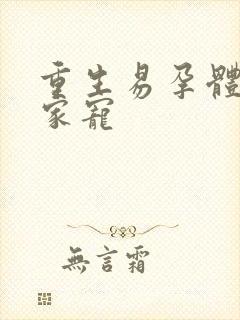 重生易孕體
家寵
無言霜